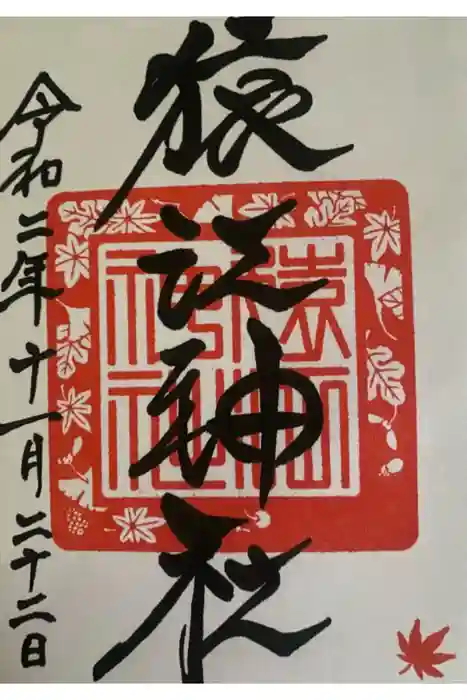 猿江神社
令和二年十一月二十二日
猿江神社